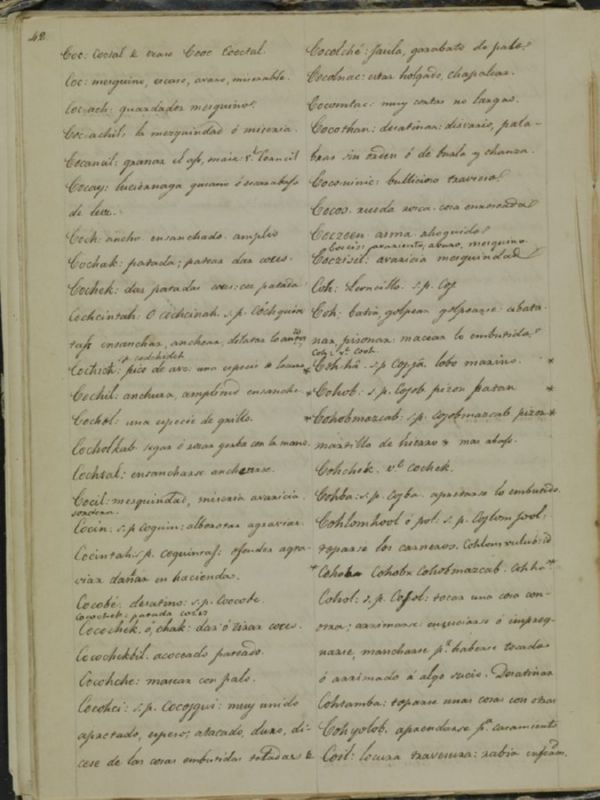 42
Coc: Cocsal & vease Cooc Coectal.
Coc: mezquino, escaso, avaro, miserable.
Coc-ach: guardador mezquino.
Coc-achil: la mezquindad ó miseria.
Cocancil: granar el agi, maiz
Cocay: luciernaga gusano ó escarabajo
de luz.
Coch: ancho ensanchado amplio
Cochak: patada; patear dar coces.
Cochek: dar patadas coces: coz patada
Cochcintah: O cochcinah. s.p. Cochquin
tah ensanchar, anchear, dilatar lo
Cochich: pico de ave. una especie de
Cochil: anchura, amplitud ensanche
Cochol: una especie de grillo.
Cocholkab segar ó rozar yerba con la mano.
Cochtal: ensancharse anchearse.
Cocil: mezquindad, miseria avaricia.
sordera.
Cocin: s.p. coquin: alborotar agraviar.
Cocintah. s.p. coquintah: ofender agra-
viar dañar en haciendas.
Cocobé. desatino: s.p. Coocobe
Cocochek: patada coces
Cocochek. ó, chak: dar ó tirar coces.
Cocochekbil. acoceado pateado.
Cocohche: mascar con palo.
Cocohci: s.p. Cocojqui: muy unido
apretado, espeso; atacado, duro, di-
cese de las cosas embutidas
Cocolché: Jaula, garabato de palo.
Cocolnac: estar holgado, chapalear.
Cocomtac: muy cortas no largas.
Cocothan: desatinar: disvario, pala-
bras sin orden ó de burla y chanza.
Cocouinic: bullicioso travieso
Cocos rueda rosca cosa enroscada
Coczeen asma ahoguido
avariento, avaro, mezquino
Coczisil: avaricia mezquindad
Coh: Leoncillo. s.p. Coj
Coh: batir, golpear golpearse: abata-
nar, pisonar: macear lo embutido.
Coh: Vé Cooh.
Coh-há. s.p Copjá. lobo marino. *
* Cohob. s.p. Cojob pizon *
* Cohobmazcab: s.p. Cojobmazcab pizon *
martillo de hierro & mas abajo.
Cohchek. vé Cochek.
Cohba: s.p. Cojba. apretarse lo embutido.
Cohlomhool ó pol. s.p. Cojlom jool:
toparse los carneros. Cohlom id
* Cohoba Cohobmazcab. Cohhá *
Cohol: s.p. Cojol: tocar una cosa con-
otra; arrimarse: ensuciarse ó impreg-
narse, mancharse pr. haberse tocado
ó arrimado á algo sucio. Desatinar
Cohtamba: toparse unas cosas con otras
Cohyolob. aprendarse pa. casamiento
Coil: locura travesura: rabia enferm.